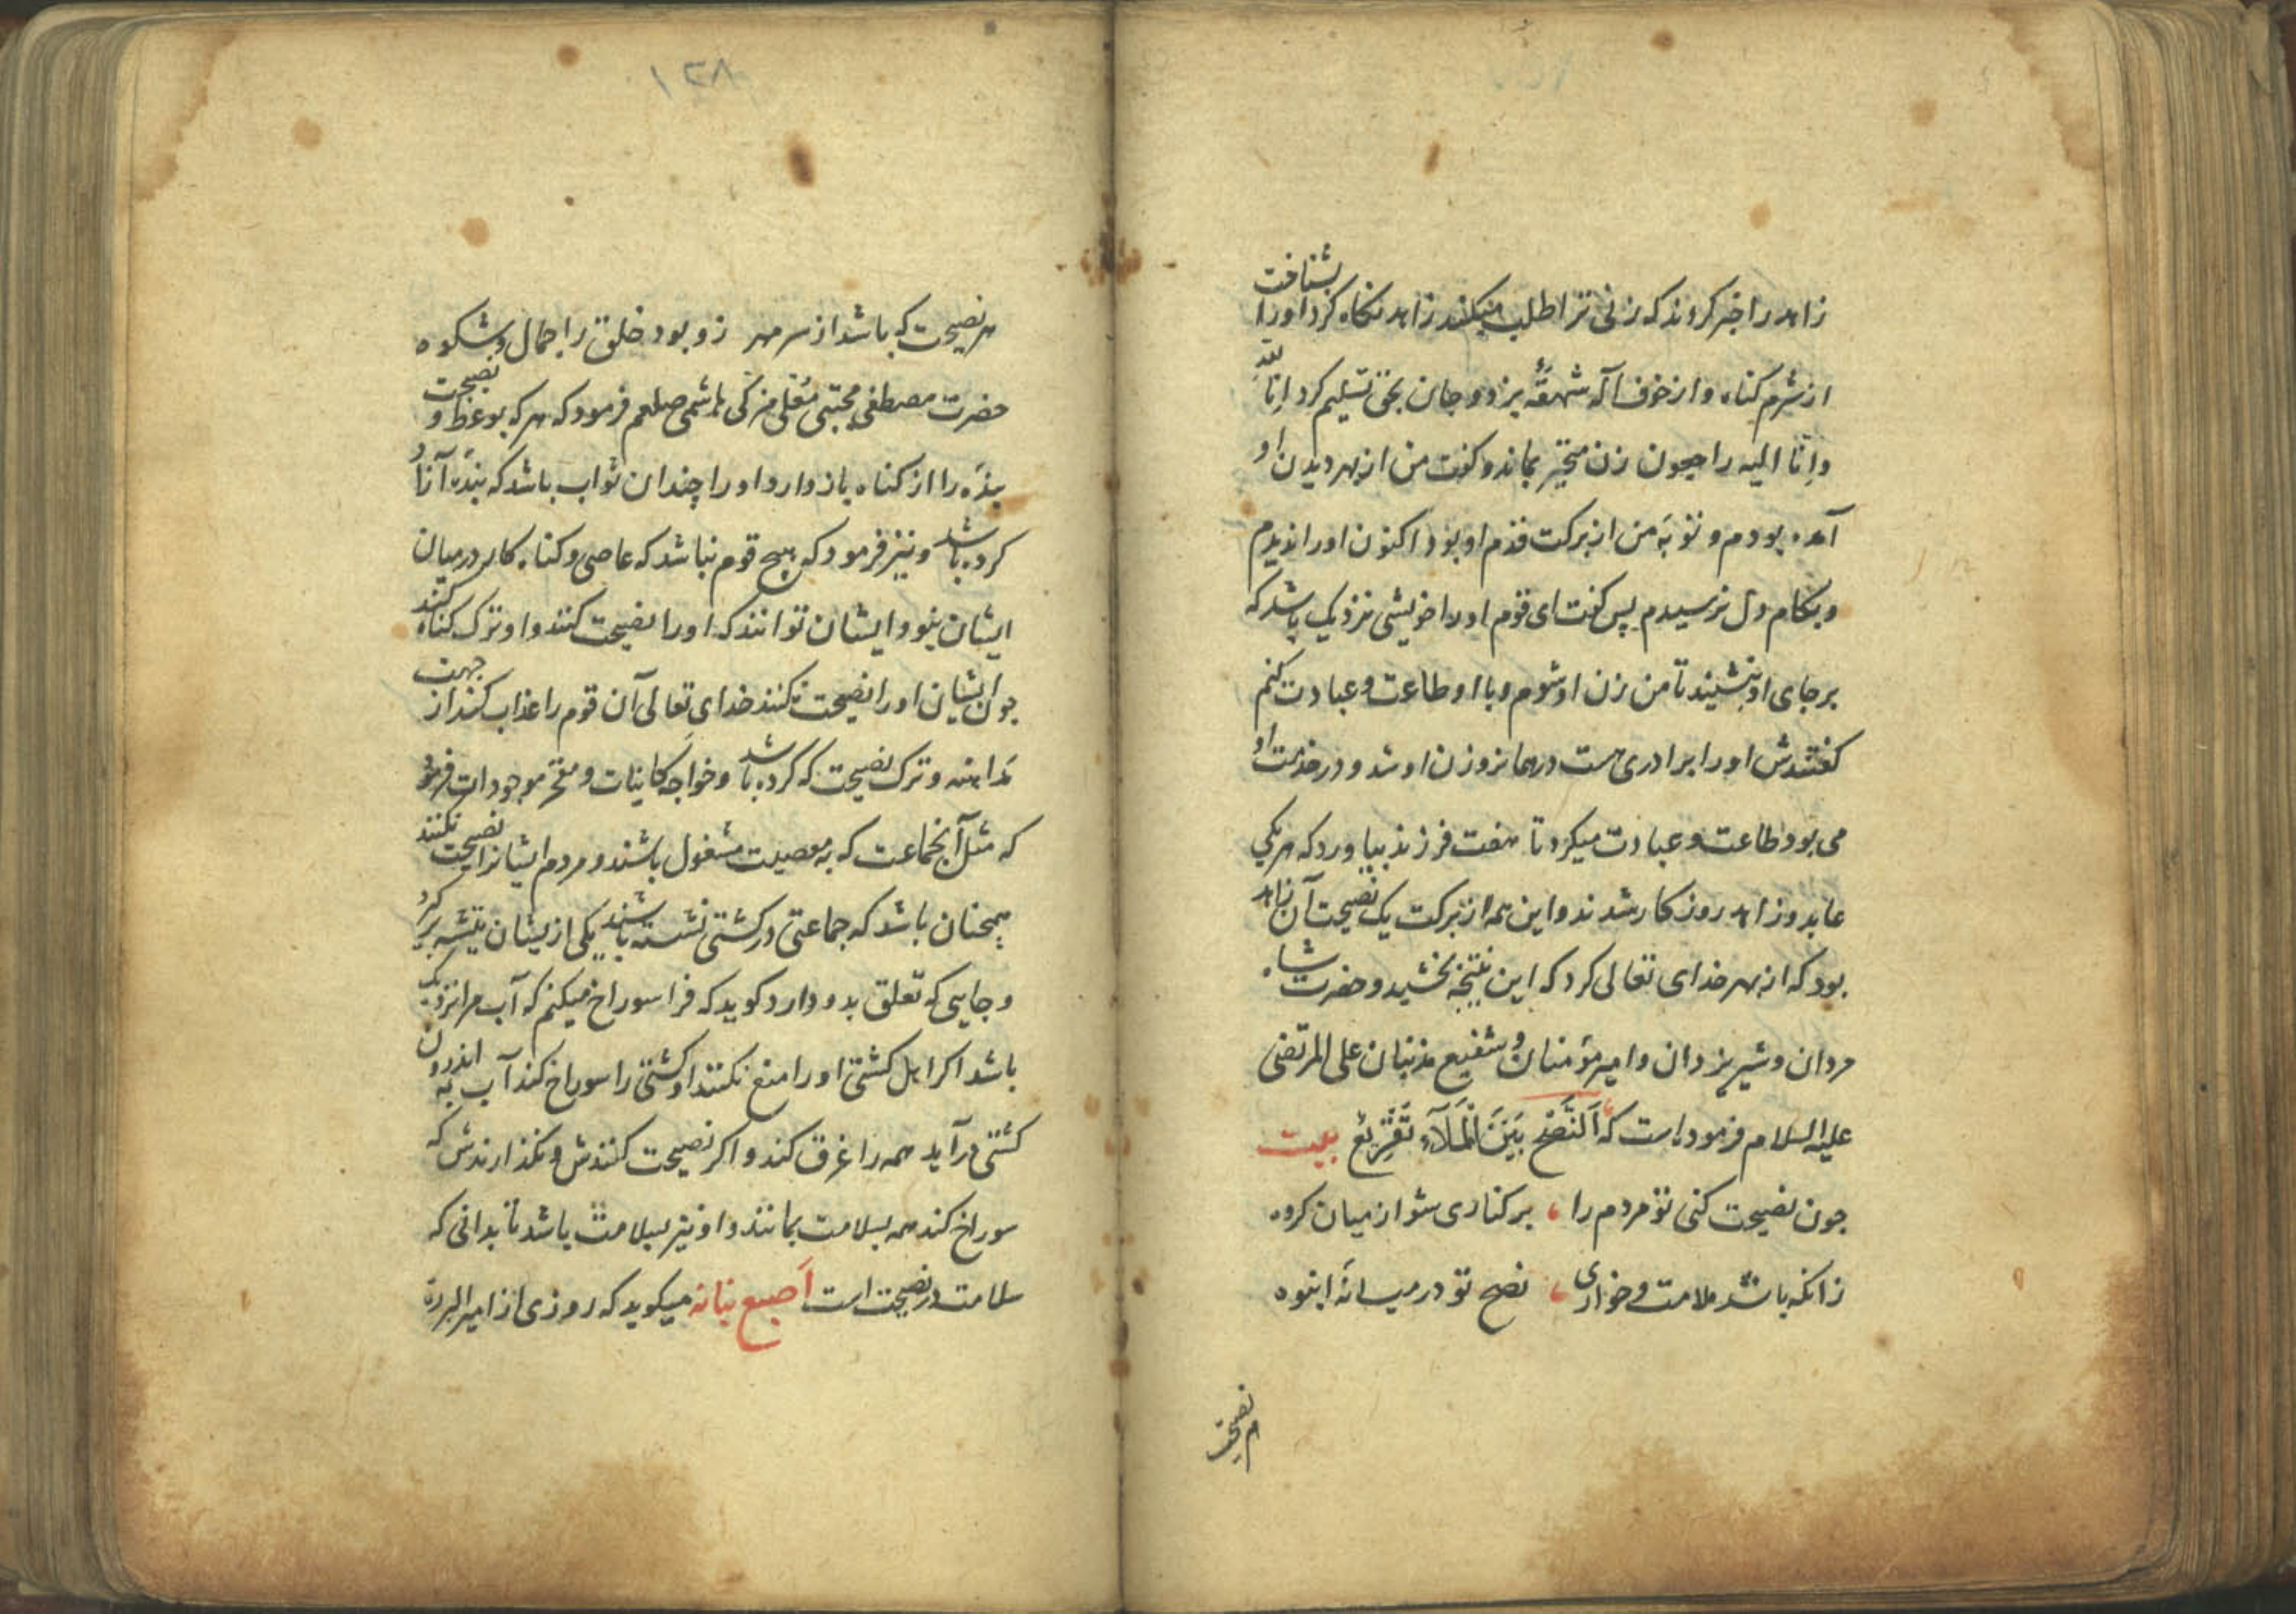 زاهد را خبر کردند که زنی ترا طلب میکند زاهد نکاه کرد او را بشناخت
از شرم کناه و از خوف اله شهقهٔ بزد و جان بحق تسلیم کرد اِنّا للهِ
واِنّا الیه راجعون زن متحیّر بماند و کفت من از بهر دیدن او
آمده بودم و توبهٔ من از برکت قدم او بود اکنون او را ندیدم
و بکام دل نرسیدم پس کفت ای قوم او را خویشی نزدیک باشد که
بر جای او بنشیند تا من زن او شوم و با او طاعت و عبادت کنم
کفتندش او را برادری هست در همانروز زن او شد و در خدمت او
می بود طاعت و عبادت میکرد تا هفت فرزند بیاورد که هر یکی
عابد و زاهد روزکار شدند و این همه از برکت یک نصیحت آن زاهد
بود که از بهر خدای تعالی کرد که این نتیجه بخشید و حضرت شاه
مردان و شیر یزدان و امیر مؤمنان و شفیع مذنبان علی المرتضی
علیه السلام فرموده است که اَلنُّصْحُ بَیْنَ الْمَلَآءِ تَقْرِیْعٌ بیت
جون نصیحت کنی تو مردم را ، بر کناری شو از میان کروه
زانکه باشد ملامت و خواری ، نصح تو در میانهٔ انبوه
هر نصیحت
۱۲۸
هر نصیحت که باشد از سر مهر زو بود خلق را جمال و شکوه
حضرت مصطفی مجتبی معلّی مزکی هاشمی صلعم فرمود که هر که بوعظ و نصیحت
بندهٔ را از کناه باز دارد او را چندان ثواب باشد که بندهٔ آزاد
کرده باشد و نیز فرمود که هیچ قوم نباشد که عاصی و کناه کار در میان
ایشان بود و ایشان توانند که او را نصیحت کنند و او ترک کناه کند
جون ایشان او را نصیحت نکنند خدای تعالی آن قوم را عذاب کند از جهت
مداهنه و ترک نصیحت که کرده باشد و خواجه کاینات و مفخر موجودات فرمود
که مثل آنجماعت که به معصیت مشغول باشند و مردم ایشانرا نصیحت نکنند
همجنان باشد که جماعتی در کشتی نشسته باشند یکی از یشان تیشه برکیرد
و جایی که تعلق بدو دارد کوید که فرا سوراخ میکنم که آب مرا نزدیک
باشد اکر اهل کشتی او را منع نکنند او کشتی را سوراخ کند آب به اندرون
کشتی درآید همه را غرق کند و اکر نصیحت کنندش و نکذارندش که
سوراخ کند همه بسلامت بمانند و او نیز بسلامت باشد تا بدانی که
سلامت در نصیحت است اَصبع نباته میکوید که روزی از امیر البرره